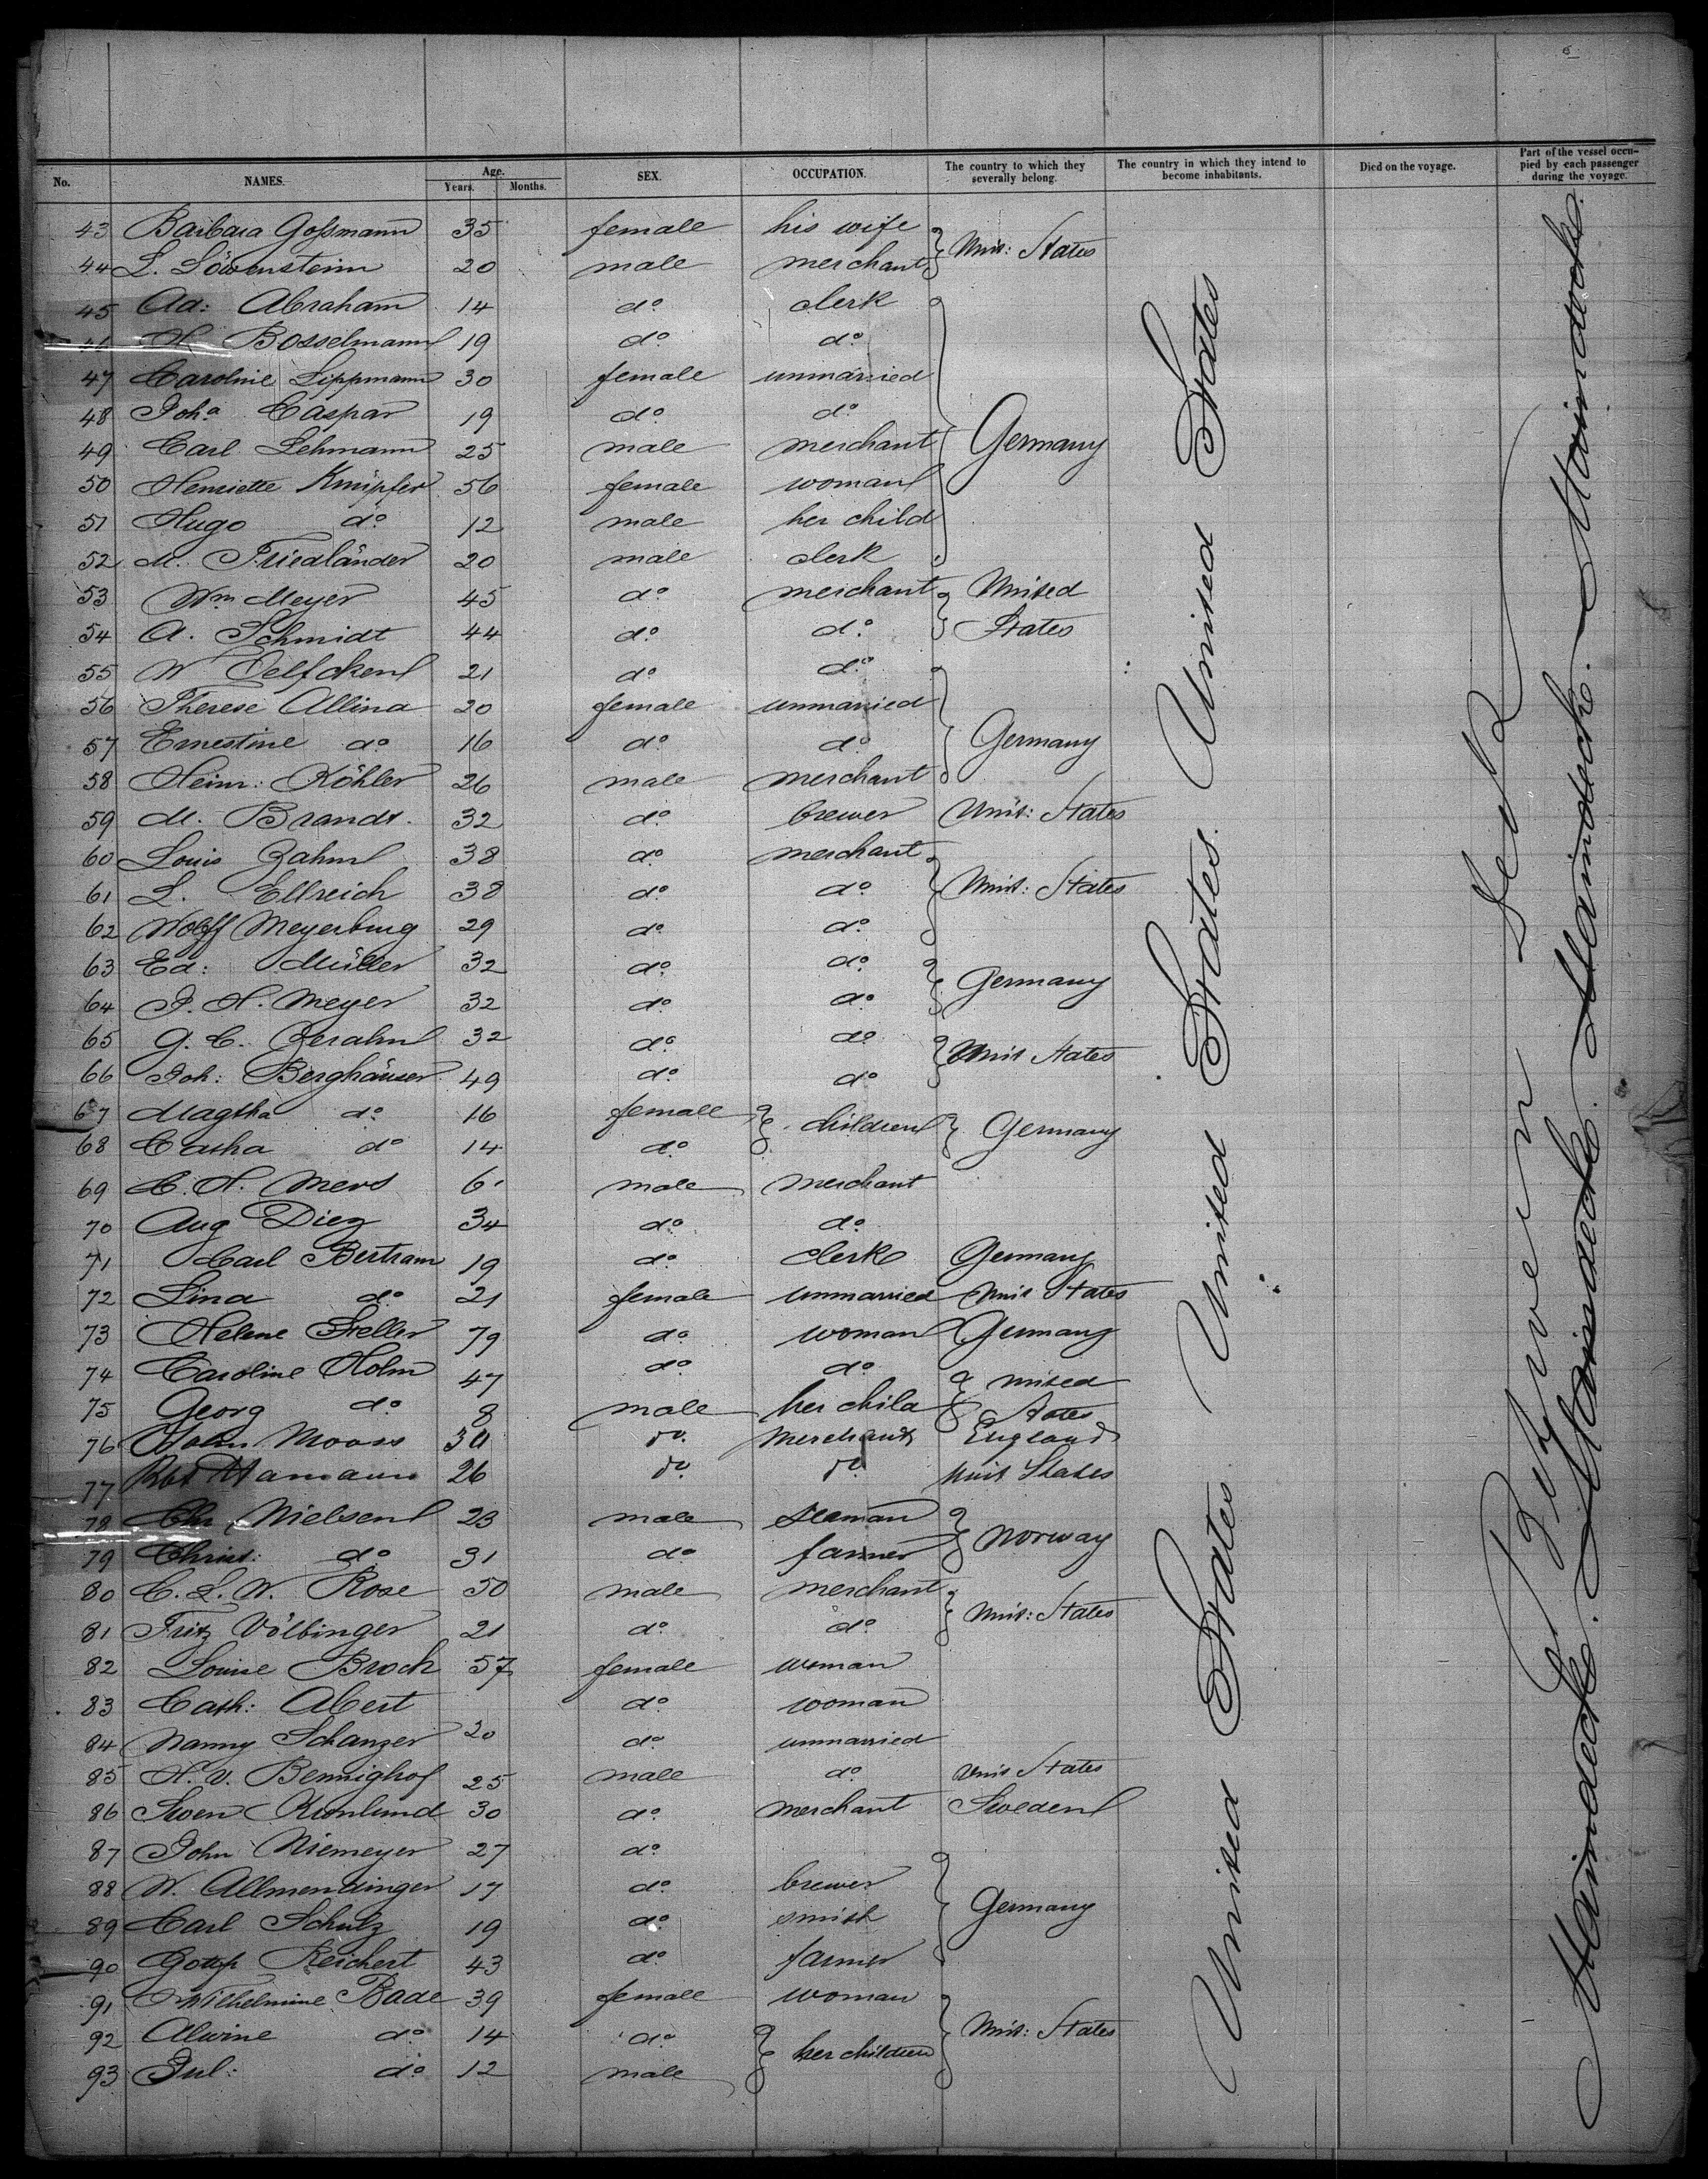 No. NAMES. Age. Years. Months. SEX. OCCUPATION. The country to which they severally belong. The country in which they intend to become inhabitants. Died on the voyage. Part of the vessel occupied by each passenger during the voyage.
43 Barbara Goßmann 35 female his wife
44 L. Löwenstein 20 male merchant Unit: States
45 Ad: Abraham 14 do clerk
46 H Bosselmann 19 do do
47 Caroline Lippmann 30 female unmarried
48 Joha Caspar 19 do do
49 Carl Lehmann 25 male merchant Germany
50 Henriette Knüpfer 56 female woman
51 Hugo do 12 male her child
52 M. Friedländer 20 male clerk
53 Wm Meyer 45 do merchant United
54 A. Schmidt 44 do do States
55 W Oelfcken 21 do do
56 Therese Allina 20 female unmarried
57 Ernestine do 16 do do Germany
58 Heinr: Köhler 26 male merchant
59 M. Brandt. 32 do brewer Unit: States
60 Louis Zahn 38 do merchant
61 L. Ellreich 38 do do Unit: States
62 Wolff Meyerburg 29 do do
63 Ed: Müller 32 do do Germany
64 J. H. Meyer 32 do do
65 G. C. 32 do do Unit States
66 Joh: Berghäuser 49 do do
67 Magtha do 16 female children Germany
68 Catha do 14 do
69 C. H. Mers 6 male merchant
70 Aug Diez 34 do do
71 Carl Bertram 19 do clerk Germany
72 Lina do 21 female unmarried Unit States
73 Helene Steller 79 do woman Germany
74 Caroline Holm 47 do do United
75 Georg do 8 male her child States
76 John Moors 30 do Merchant England
77 Rbt Hamann 26 do do Unit States
78 Chr Nielsen 23 male seaman Norway
79 Christ: do 31 do farmer
80 C. L. W. Rose 50 male merchant Unit: States
81 Fritz Völbinger 21 do do
82 Louise Brock 57 female woman
83 Cath: Abert do woman
84 Nanny Schanzer 20 do unmarried
85 H. v. Bennighof 25 male do Unit States
86 Swen 30 do merchant Sweden
87 John Niemeyer 27 do
88 W. Allmendinger 17 do brewer
89 Carl Schulz 19 do smith Germany
90 Gottf Reichert 43 do farmer
91 Wilhelmine Bade 39 female woman
92 Alwine do 14 do her children Unit: States
93 Jul: do 12 male
United States United States United States United States
Zwven Deck
Maindeck. Maindeck. Maindeck. Maindeck.